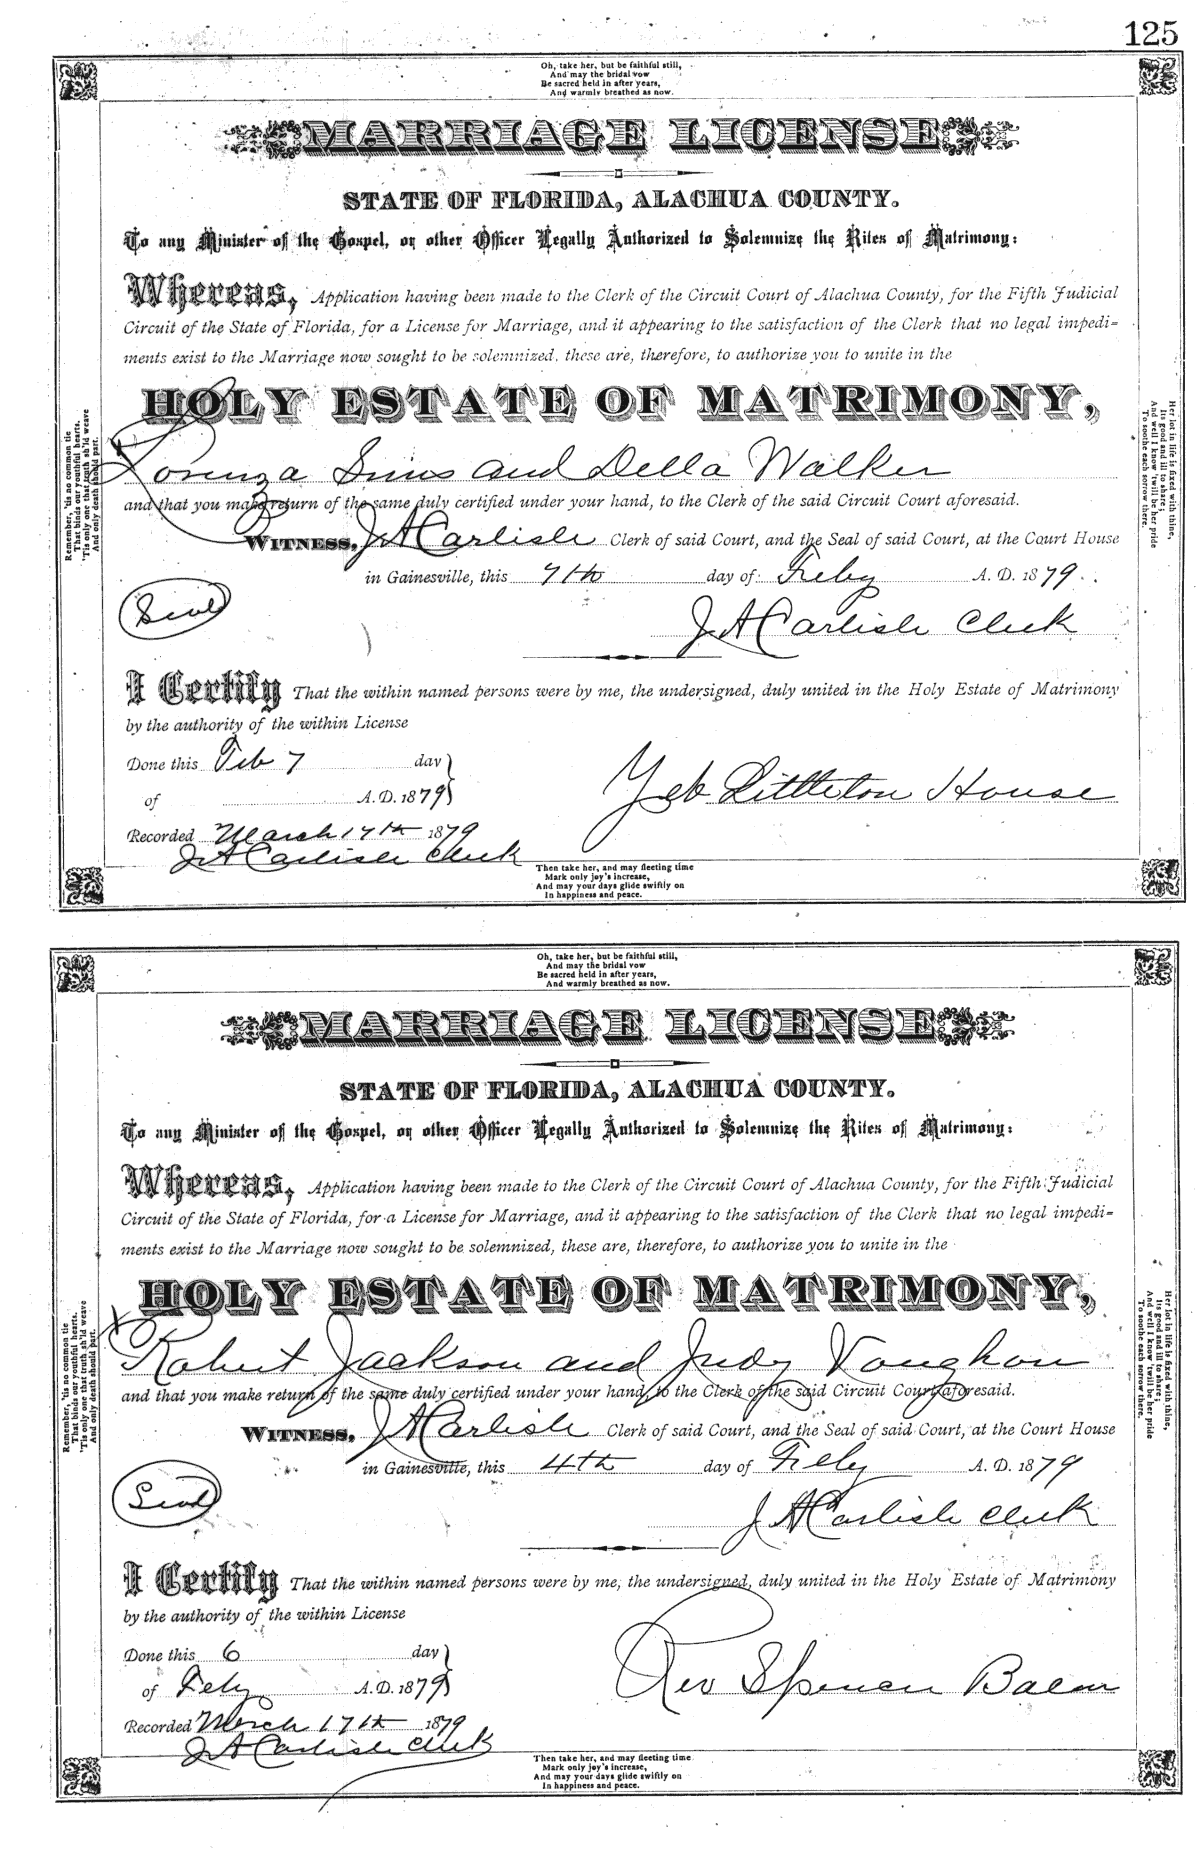 125
Oh, take her, but be faithful still,
And may the bridal vow
Be sacred held in after years,
And warmly breathed as now.
MARRIAGE LICENSE
STATE OF FLORIDA, ALACHUA COUNTY.
To any Minister of the Gospel, or other Officer Legally Authorized to Solemnize the Rites of Matrimony:
Whereas, Application having been made to the Clerk of the Circuit Court of Alachua County, for the Fifth Judicial
Circuit of the State of Florida, for a License for Marriage, and it appearing to the satisfaction of the Clerk that no legal impedi-
ments exist to the Marriage now sought to be solemnized, these are, therefore, to authorize you to unite in the
HOLY ESTATE OF MATRIMONY,
Lorenza Sims and Della Walker
and that you make return of the same duly certified under your hand, to the Clerk of the said Circuit Court aforesaid.
WITNESS, J A Carlisle Clerk of said Court, and the Seal of said Court, at the Court House
in Gainesville, this 7th day of Feby A. D. 1879
Seal
J A Carlisle Clerk
I Certify That the within named persons were by me, the undersigned, duly united in the Holy Estate of Matrimony
by the authority of the within License
Done this Feb 7 day
of A.D. 1879
Littleton House
Recorded March 17th 1879
J A Carlisle Clerk
Then take her, and may fleeting time
Mark only joy's increase,
And may your days glide swiftly on
In happiness and peace.
Remember, 'tis no common tie
That binds our youthful hearts,
'Tis only one that truth sh'ld weave
And only death should part.
Her lot in life is fixed with thine,
Its good and ill to share;
And well I know 'twill be her pride
To soothe each sorrow there.
Oh, take her, but be faithful still,
And may the bridal vow
Be sacred held in after years,
And warmly breathed as now.
MARRIAGE LICENSE
STATE OF FLORIDA, ALACHUA COUNTY.
To any Minister of the Gospel, or other Officer Legally Authorized to Solemnize the Rites of Matrimony:
Whereas, Application having been made to the Clerk of the Circuit Court of Alachua County, for the Fifth Judicial
Circuit of the State of Florida, for a License for Marriage, and it appearing to the satisfaction of the Clerk that no legal impedi-
ments exist to the Marriage now sought to be solemnized, these are, therefore, to authorize you to unite in the
HOLY ESTATE OF MATRIMONY,
Robert Jackson and Judy Vaughon
and that you make return of the same duly certified under your hand, to the Clerk of the said Circuit Court aforesaid.
WITNESS, J A Carlisle Clerk of said Court, and the Seal of said Court, at the Court House
in Gainesville, this 4th day of Feby A. D. 1879
Seal
J A Carlisle Clerk
I Certify That the within named persons were by me, the undersigned, duly united in the Holy Estate of Matrimony
by the authority of the within License
Done this 6 day
of Feby A.D. 1879
Rev Spencer
Recorded March 17th 1879
J A Carlisle Clerk
Then take her, and may fleeting time
Mark only joy's increase,
And may your days glide swiftly on
In happiness and peace.
Remember, 'tis no common tie
That binds our youthful hearts,
'Tis only one that truth sh'ld weave
And only death should part.
Her lot in life is fixed with thine,
Its good and ill to share;
And well I know 'twill be her pride
To soothe each sorrow there.